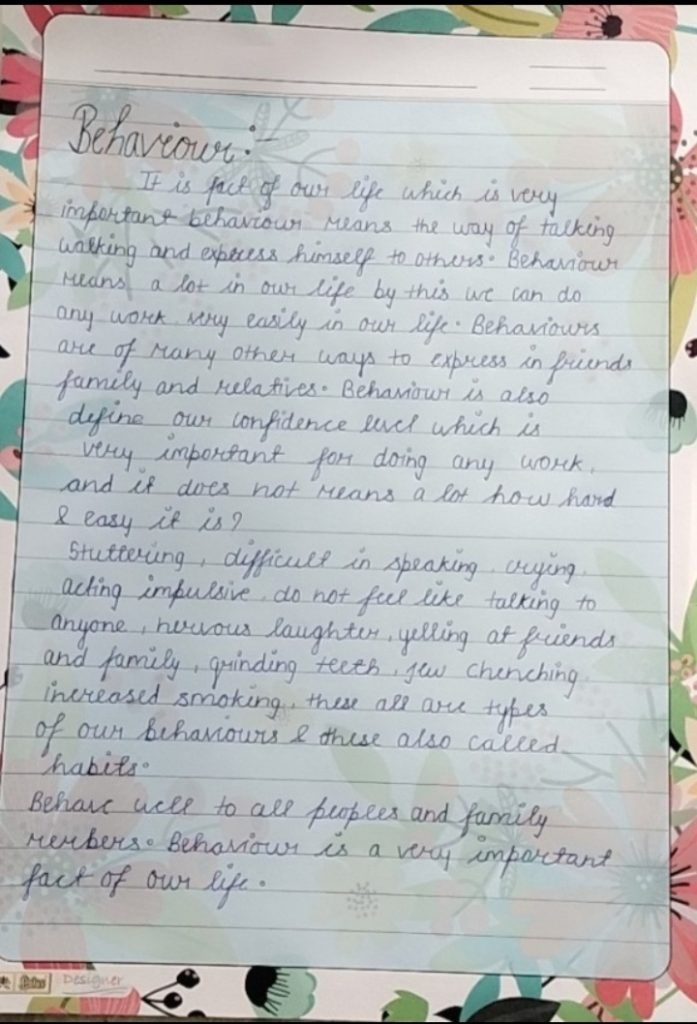 Behaviour :-
It is fact of our life which is very
important behaviour means the way of talking
walking and express himself to others. Behaviour
means a lot in our life by this we can do
any work very easily in our life. Behaviours
are of many other ways to express in friends
family and relatives. Behaviour is also
define our confidence level which is
very important for doing any work,
and it does not means a lot how hard
& easy it is?
Stuttering, difficult in speaking, crying,
acting impulsive, do not feel like talking to
anyone, nervous laughter, yelling at friends
and family, grinding teeth, jew chenching,
increased smoking, these all are types
of our behaviours & these also called
habits.
Behave well to all peoples and family
members. Behaviour is a very important
fact of our life.
Designer